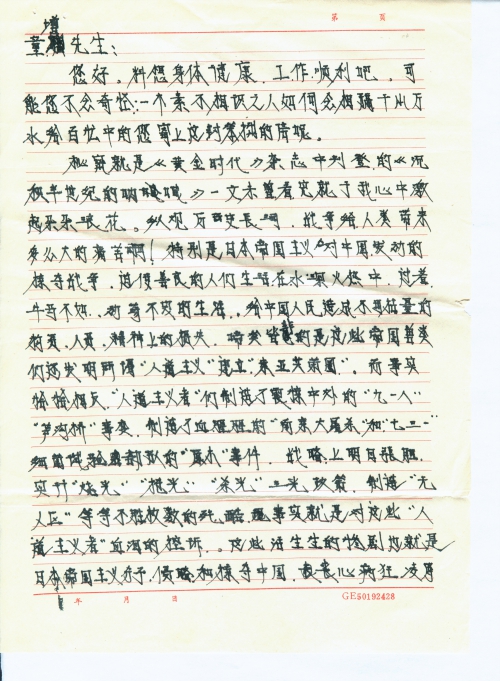 第 页
童增先生:
您好。料您身体健康,工作顺利吧,可
能您不会奇怪:一个素不相识之人如何会相隔千山万
水给百忙中的您寄上这封笨拙的信呢。
就是《黄金时代》杂志中刊登的《沉
半世纪的呐喊》一文未曾看完就于我心中激
起朵朵浪花。纵观万史长河,战争给人类带来
多么大的痛苦啊!特别是日本帝国主义对中国发动的
掠夺战争,迫使善良的人们生活在水深火热中,过着
牛马不如、的生活。给中国人民造成不可估量的
物质、人员、精神上的损失。的是这些帝国兽类
们还发明所谓“人道主义”建立“东亚共荣圈”。而事实
恰恰相反,“人道主义者”们制造了震惊中外的“九一八”
“芦沟桥”事变,制造了血腥腥的“南京大屠杀”和“七三一”
细菌试验部队的“”事件,战略上明目张胆
实行“烧光”“抢光”“杀光”三光政策,制造“无
人区”等等不胜枚数的,事实就是对这些“人
道主义者”血泪的控诉。这些活生生的就是
日本帝国主义侵略和掠夺中国,丧心病狂,
年 月 日
GE50192428